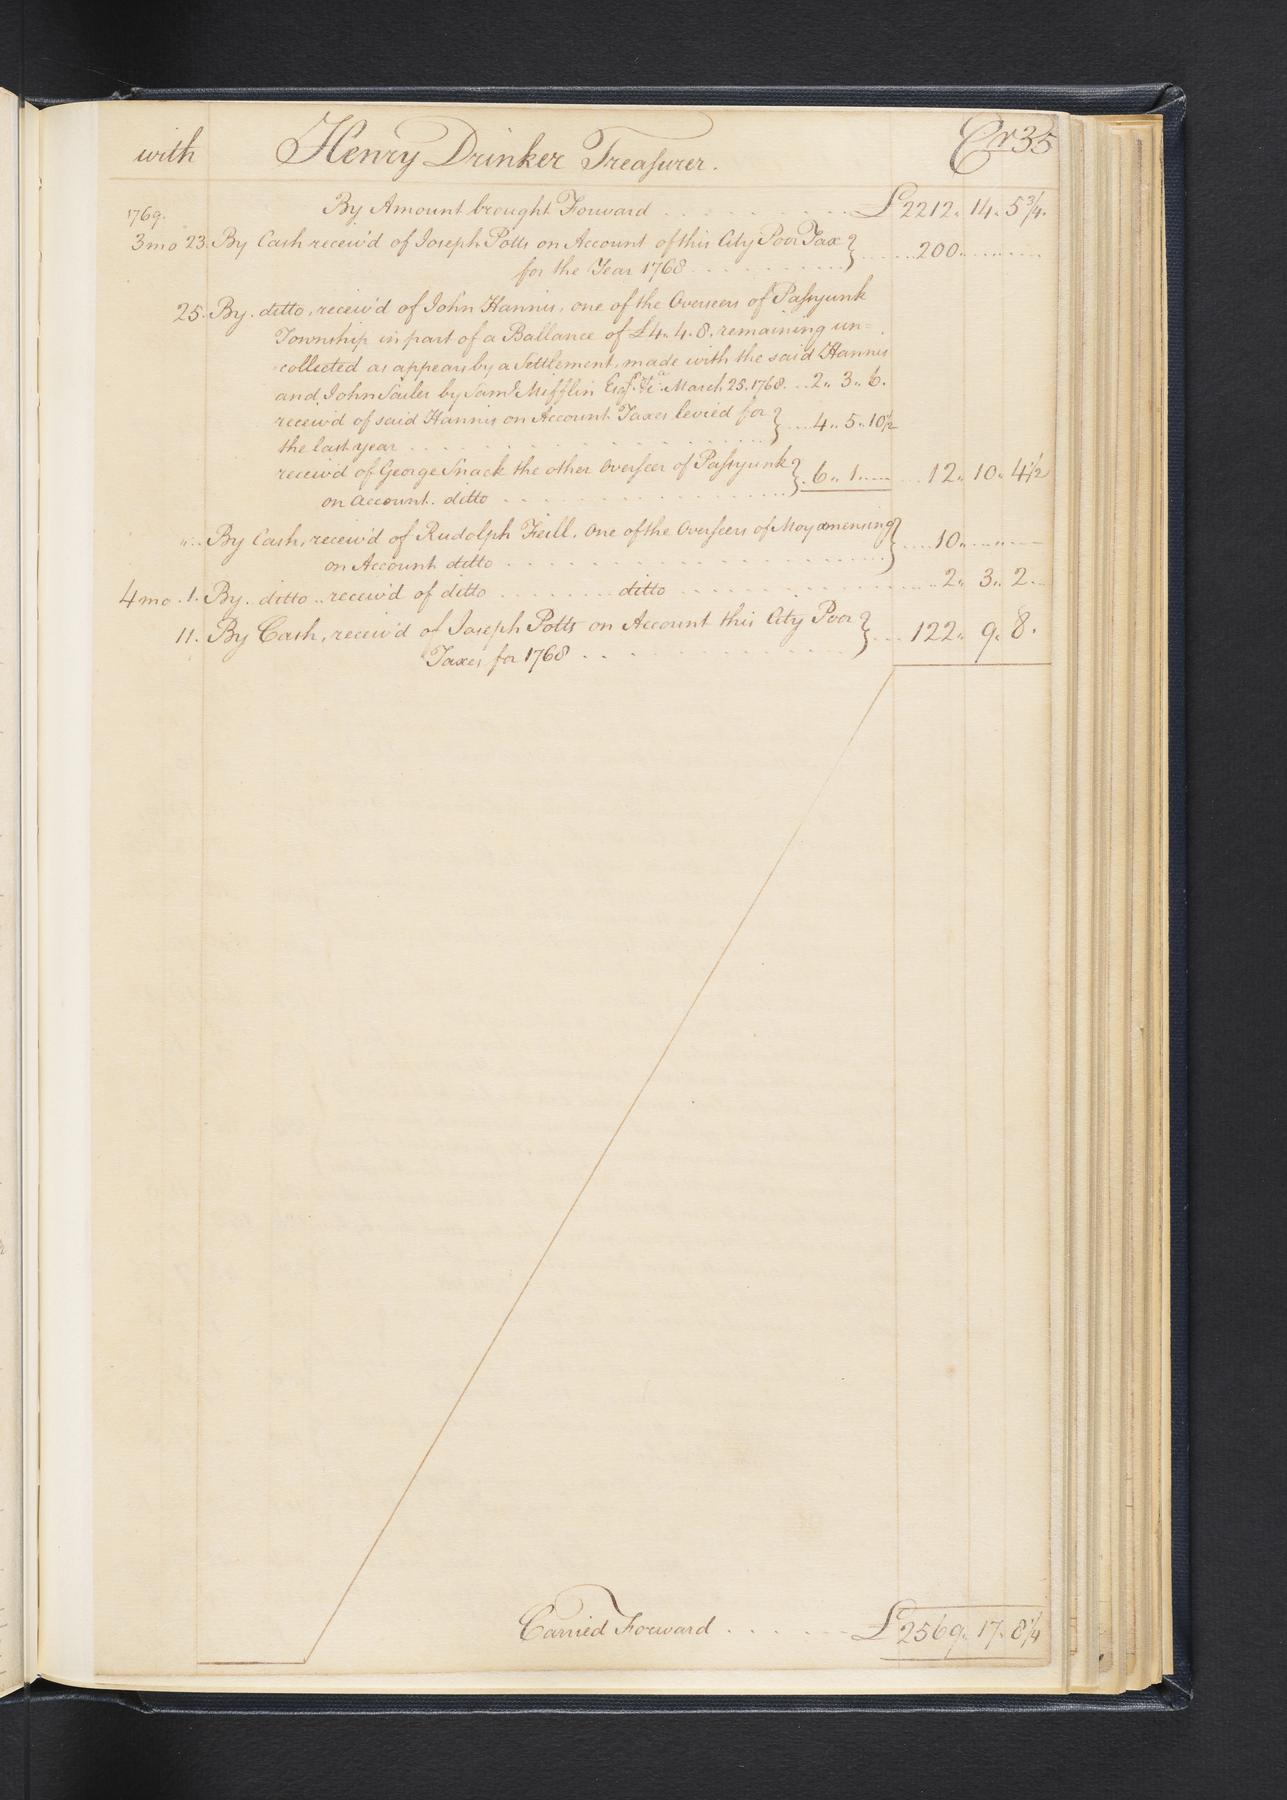 with Henry Drinker Treasurer. Cr 35
By Amount brought Forward £2212.. 14.. 5 3/4.
1769.
3mo 23. By Cash receiv'd of Joseph Potts on Account of this City Poor Tax } 200
for the Year 1768
25. By. ditto, receiv'd of John Hannis, one of the Overseers of Passyunk
Township in part of a Ballance of £4.. 4.. 8. remaining un=
collected as appears by a Settlement, made with the said Hannis
and John Sailer by Saml. Mifflin Esqr. &ca. March 25. 1768. 2.. 3.. 6.
receiv'd of said Hannis on Account Taxes levied for } 4.. 5.. 10 1/2
the last year
receiv'd of George Snack the other Overseer of Passyunk } 6.. 1.. 12.. 10.. 4 1/2
on account. ditto
".. By Cash, receiv'd of Rudolph Feill, One of the Overseers of Moyamensing } 10..
on Account ditto
4mo. 1. By.. ditto.. receiv'd of ditto ditto 2.. 3.. 2..
11. By Cash, receiv'd of Joseph Potts on Account this City Poor } 122.. 9.. 8.
Taxes for 1768
Carried Forward £2569.. 17.. 8 1/4